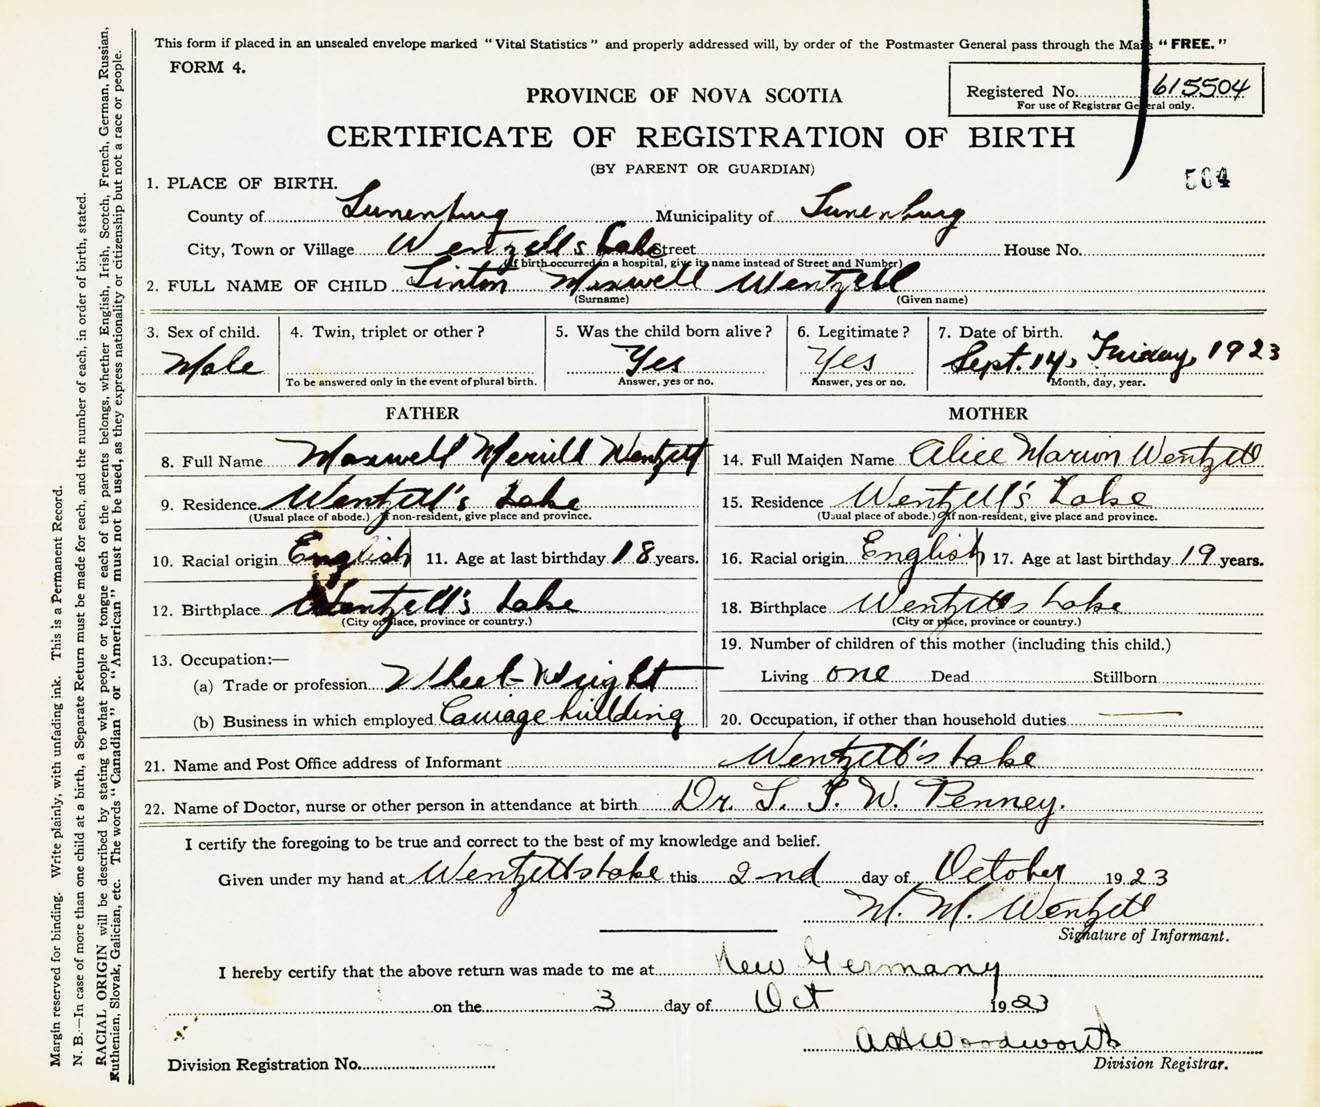 This form if placed in an unsealed envelope marked “Vital Statistics” and properly addressed will, by order of the Postmaster General pass through the Mails “FREE.”
FORM 4.
Registered No. 615504
For use of Registrar General only.
PROVINCE OF NOVA SCOTIA
CERTIFICATE OF REGISTRATION OF BIRTH
(BY PARENT OR GUARDIAN)
564
1. PLACE OF BIRTH.
County of Lunenburg Municipality of Lunenburg
City, Town or Village Wentzells Lake Street House No.
(If birth occurred in a hospital, give its name instead of Street and Number)
2. FULL NAME OF CHILD Linton Maxwell Wentzell
(Surname) (Given name)
3. Sex of child. 4. Twin, triplet or other? 5. Was the child born alive? 6. Legitimate? 7. Date of birth.
Male Yes Yes Sept. 14, Friday, 1923
To be answered only in the event of plural birth. Answer, yes or no. Answer, yes or no. Month, day, year.
FATHER MOTHER
8. Full Name Maxwell Merrill Wentzell 14. Full Maiden Name Alice Marion Wentzell
9. Residence Wentzell's Lake 15. Residence Wentzell's Lake
(Usual place of abode.) If non-resident, give place and province. (Usual place of abode.) If non-resident, give place and province.
10. Racial origin English 11. Age at last birthday 18 years. 16. Racial origin English 17. Age at last birthday 19 years.
12. Birthplace Wentzell's Lake 18. Birthplace Wentzells Lake
(City or place, province or country.) (City or place, province or country.)
13. Occupation:— 19. Number of children of this mother (including this child.)
(a) Trade or profession Wheel-Wright Living one Dead Stillborn
(b) Business in which employed Carriage building 20. Occupation, if other than household duties —
21. Name and Post Office address of Informant Wentzell's Lake
22. Name of Doctor, nurse or other person in attendance at birth Dr. W. Penney.
I certify the foregoing to be true and correct to the best of my knowledge and belief.
Given under my hand at Wentzells Lake this 2nd day of October 1923
M. M. Wentzell
Signature of Informant.
I hereby certify that the above return was made to me at New Germany
on the 3 day of Oct 1923
A H Woodworth
Division Registration No. Division Registrar.
Margin reserved for binding. Write plainly, with unfading ink. This is a Permanent Record.
N. B.—In case of more than one child at a birth, a Separate Return must be made for each, and the number of each, in order of birth, stated.
RACIAL ORIGIN will be described by stating to what people or tongue each of the parents belongs, whether English, Irish, Scotch, French, German, Russian,
Ruthenian, Slovak, Galician, etc. The words “Canadian” or “American” must not be used, as they express nationality or citizenship but not a race or people.